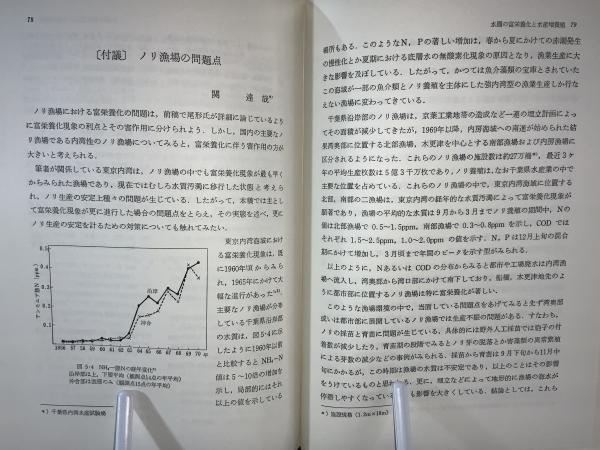 78
〔付議〕 ノリ漁場の問題点
関 達哉*⁾
ノリ漁場における富栄養化の問題は，前稿で尾形氏が詳細に論じているよう
に富栄養化現象の利点とその害作用に分けられよう．しかし，国内の主要なノ
リ漁場である内湾性のノリ漁場についてみると，富栄養化に伴う害作用の方が
大きいと考えられる．
筆者が関係している東京内湾は，ノリ漁場の中でも富栄養化現象が最も早く
からみられた漁場であり，現在ではむしろ水質汚濁に移行した状態と考えら
れ，ノリ生産の安定上種々の問題が生じている．したがって，本稿では主とし
て富栄養化現象が更に進行した場合の問題点をとらえ，その実態を述べ，更に
ノリ生産の安定を計るための対策についても触れてみたい．
東京内湾海域におけ
る富栄養化現象は，既
に1960年頃からみら
れ，1965年にかけて大
幅な進行があった
主要なノリ漁場が分布
している千葉県沿岸部
の水質は，図5·4に示
したように1960年以前
と比較すると NH₄-N
値は5～10倍の増加を
示し，局部的にはそれ
以上の値を示している
アンモニア態N (ppm)
0.5
0.4
0.3
0.2
0.1
沿岸
沖合
1956 57 58 59 60 61 62 63 64 65 66 67 68 69 70 年
図 5·4 NH₄-態Nの経年変化
沿岸部は上，下層平均（観測点14点の年平均）
沖合部は表層のみ（観測点15点の年平均）
*) 千葉県内湾水産試験場
水圏の富栄養化と水産増養殖 79
場所もある．このようなN，Pの著しい増加は，春から夏にかけての赤潮発生
の慢性化とか夏期における底層水の無酸素化現象の原因となり，漁業生産に大
きな影響を及ぼしている．したがって，かつては魚介藻類の宝庫とされていた
この海域が一部の魚介類とノリ養殖を主体にした強内湾型の漁業生産しか行な
えない漁場に変わってきている．
千葉県沿岸部のノリ漁場は，京葉工業地帯の造成など一連の埋立計画によっ
てその面積が減少してきたが，1969年以降，内房海域への南進が始められた結
果湾奥部に位置する北部漁場，木更津を中心とする南部漁場および内房漁場に
区分されるようになった．これらのノリ漁場の施設数は約27万柵*⁾，最近3ヶ
年の平均生産枚数は5億3千万枚であり，ノリ養殖は，なお千葉県水産業の中で
主要な位置を占めている．これらのノリ漁場の中で，東京内湾海域に位置する
北部，南部の二漁場は，東京内湾の経年的な水質の汚濁によって富栄養化現象が
顕著であり，漁場の平均的な水質は9月から3月までノリ養殖の期間中，Nの
値は北部漁場で 0.5～1.5ppm，南部漁場で 0.3～0.8ppm を示し，COD では
それぞれ 1.5～2.5ppm，1.0～2.0ppm の値を示す．N，Pは12月上旬の混合
期にかけて増加し，3月頃まで年間のピークを示す型がみられる．
以上のように，Nあるいは COD の分布からみると都市や工場廃水は内湾漁
場へ流入し，湾奥部から湾口部に向けて南下しており，船橋，木更津地先のよ
うに都市部に位置するノリ漁場は特に富栄養化が著しい．
このような漁場環境の中で，当面している問題点をあげてみると先ず湾奥部
或いは都市部に展開しているノリ漁場では生産不能の問題がある．すなわち，
ノリの採苗と育苗に問題が生じている．具体的には野外人工採苗では胞子の付
着数が減少したり，育苗期の段階でみるとノリ芽の脱落とか寄藻類の異常繁殖
による芽数の減少などの事例がみられる．採苗から育苗は9月下旬から11月中
旬にかかるが，この時期は漁場の水質は不安定であり，以上のことはその影響
をうけているものと思われる．更に，埋立などによって地形的に漁場の海水が
停滞しやすくなってい も影響を大きくしている．結論としては，これら
*) 施設規格（1.2m×18m）